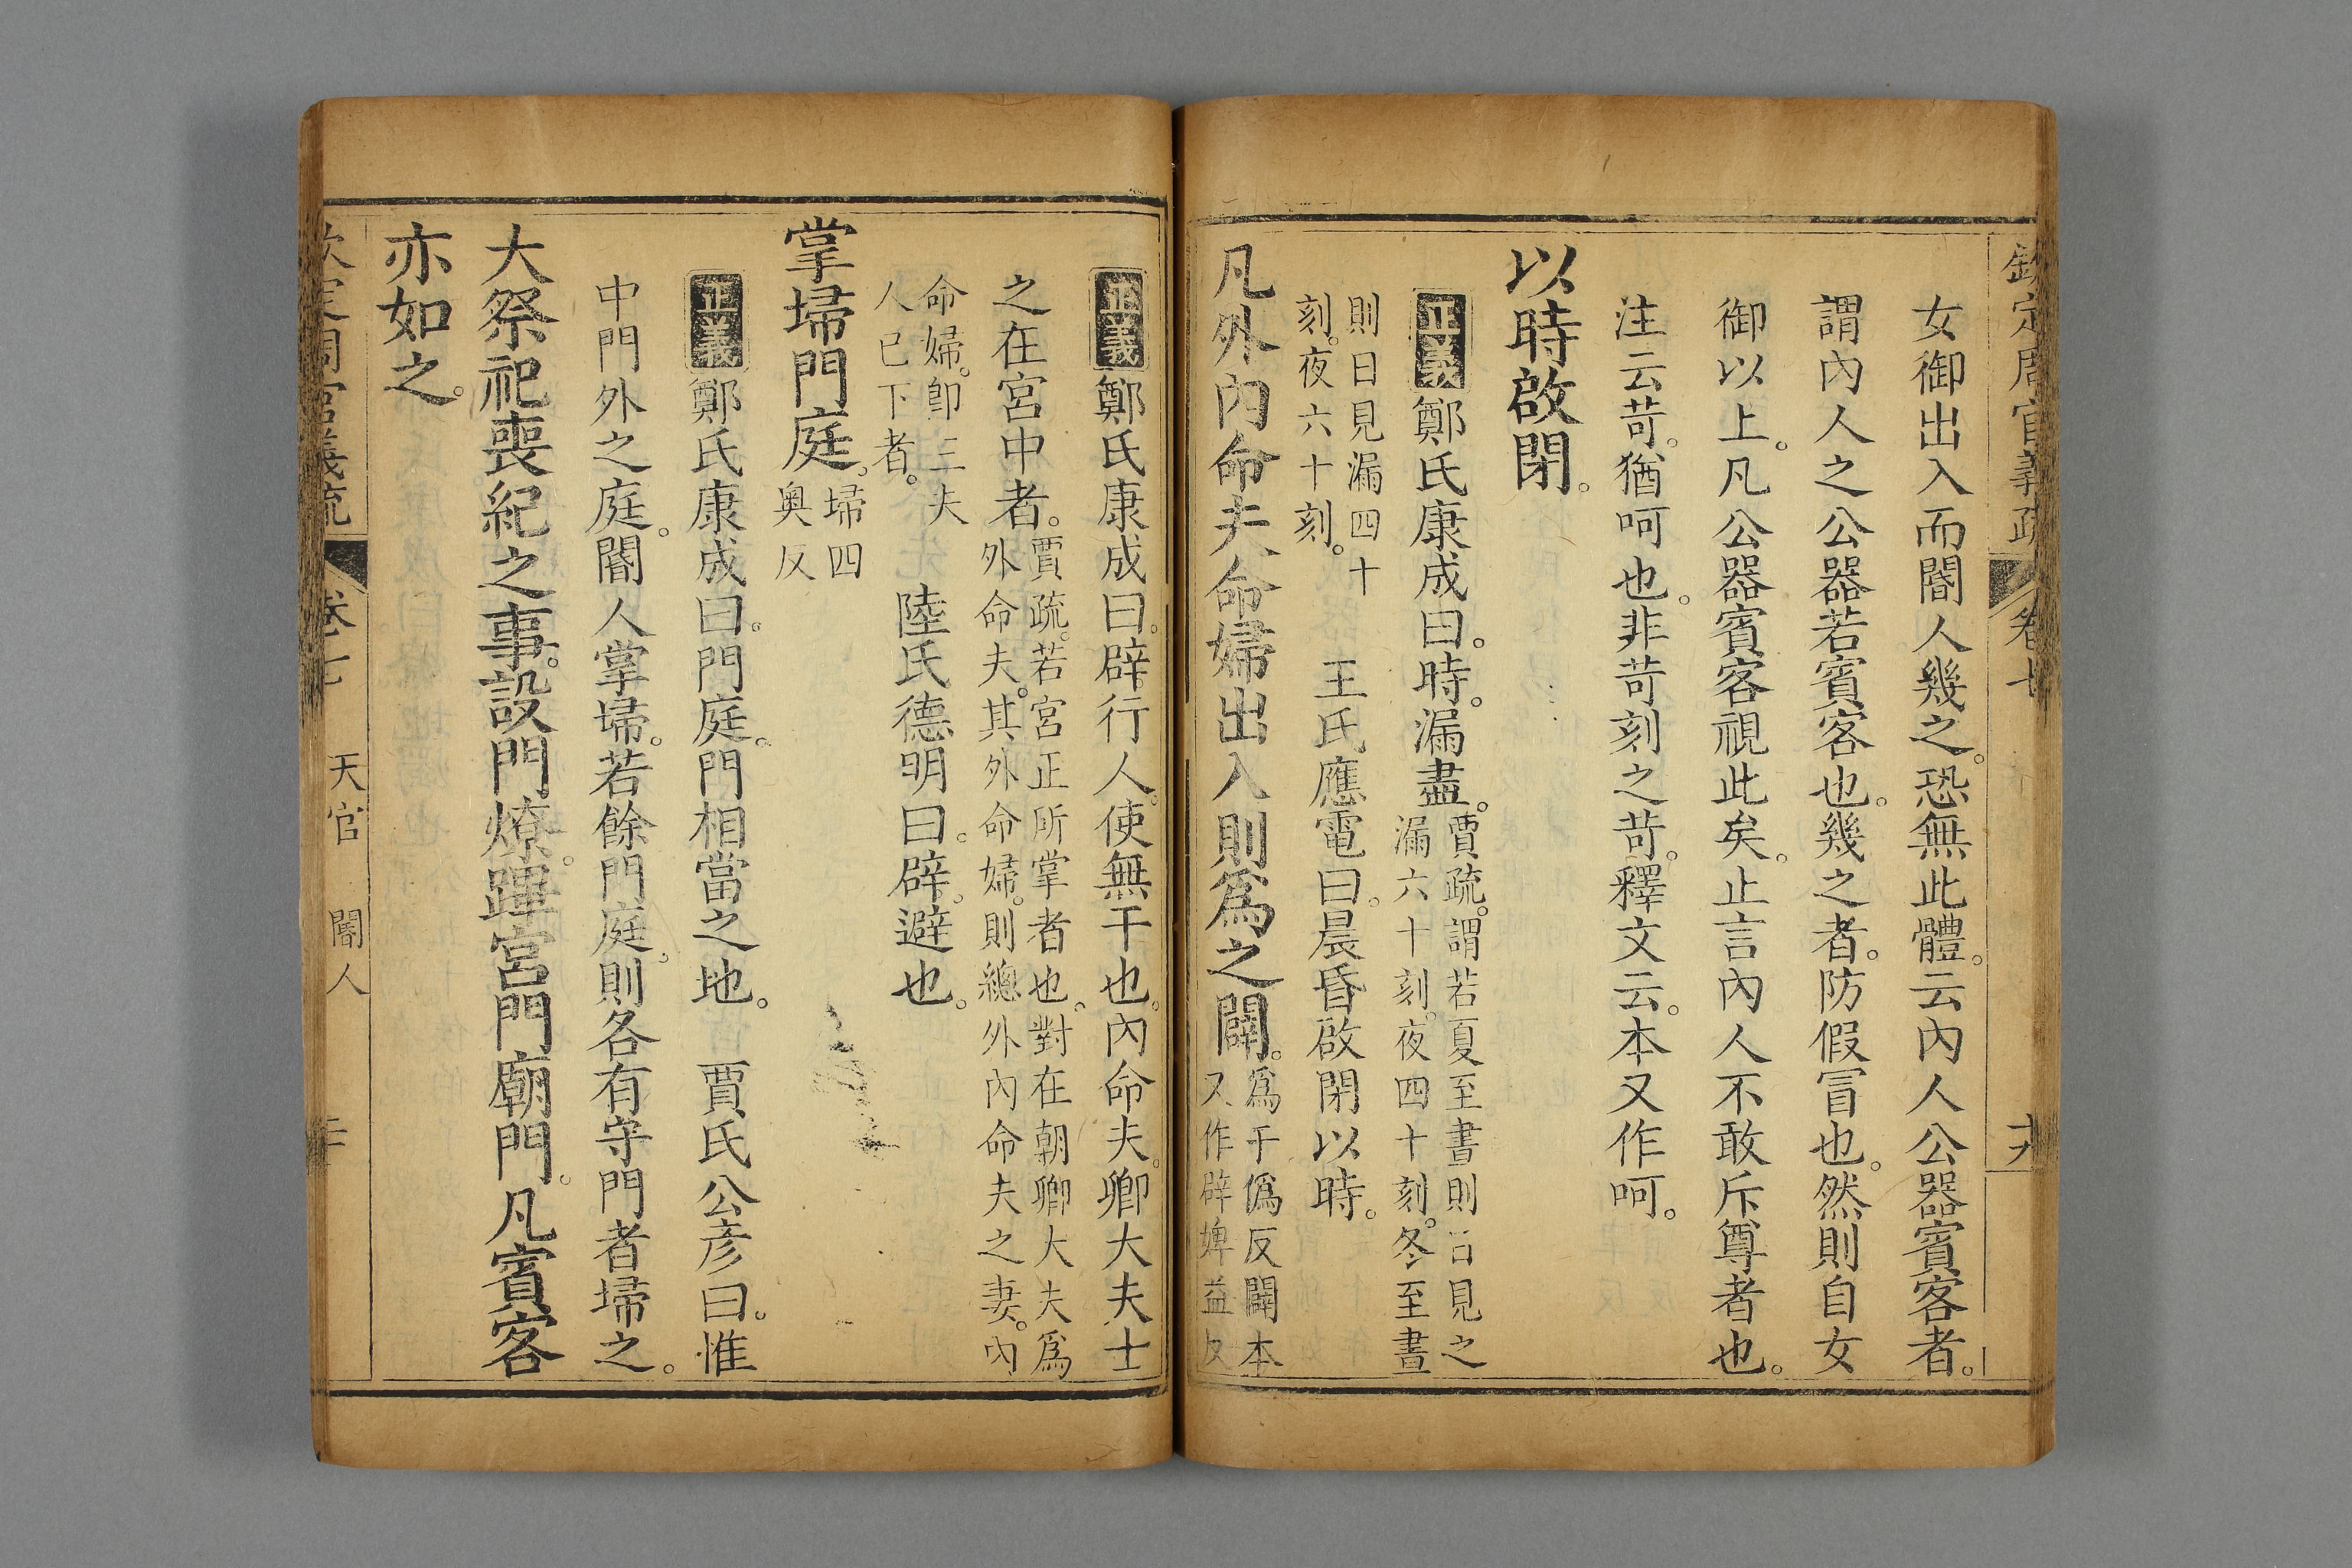 欽定周官義疏 卷七 十九
女御出入而閽人幾之。恐無此體。云內人公器賓客者。
謂內人之公器若賓客也。幾之者。防假冒也。然則自女
御以上。凡公器賓客視此矣。止言內人不敢斥尊者也。
注云苛。猶呵也。非苛刻之苛。釋文云。本又作呵。
以時啟閉。
正義鄭氏康成曰。時。漏盡。賈疏。謂若夏至晝則日見之
漏六十刻。夜四十刻。冬至晝
則日見漏四十
刻。夜六十刻。 王氏應電曰。晨昏啟閉以時。
凡外內命夫命婦出入則爲之闢。爲于僞反闢本
又作辟婢益反
正義鄭氏康成曰。辟行人。使無干也。內命夫。卿大夫士
之在宮中者。賈疏。若宮正所掌者也。對在朝卿大夫爲
外命夫。其外命婦。則總外內命夫之妻。內
命婦。卽三夫
人已下者。 陸氏德明曰。辟。避也。
掌埽門庭。埽四
奥反
正義鄭氏康成曰。門庭。門相當之地。 賈氏公彥曰。惟
中門外之庭。閽人掌埽。若餘門庭。則各有守門者埽之。
大祭祀喪紀之事。設門燎。蹕宮門廟門。凡賓客
亦如之。
欽定周官義疏 卷七 天官 閽人 二十